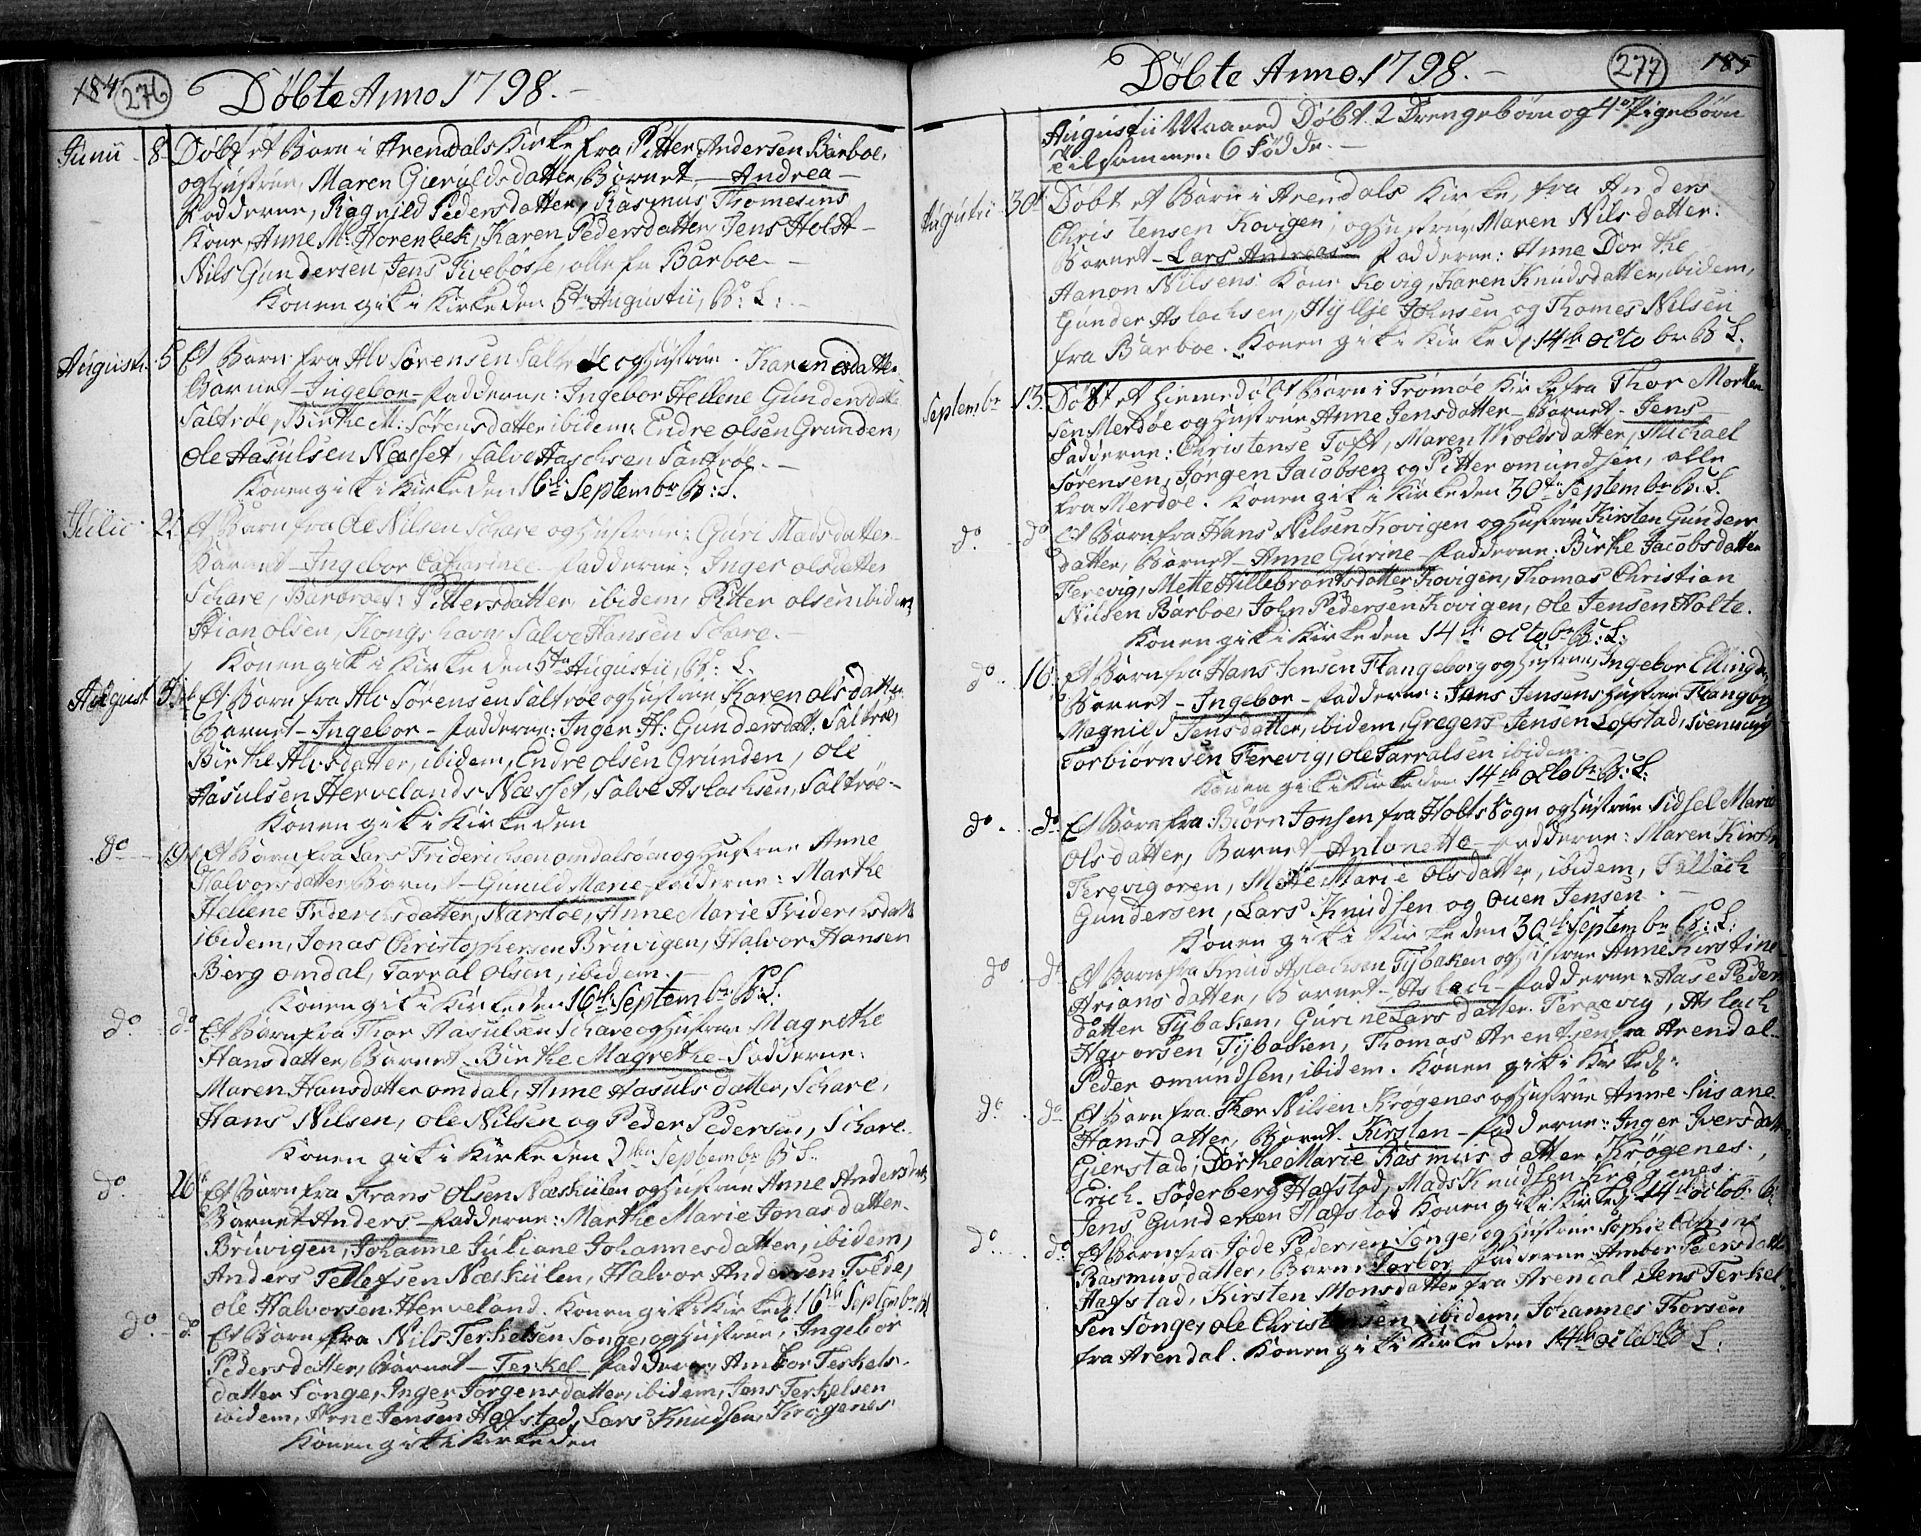 184 276 Döbte Anno 1798.
Junii 8 Döbt et Barn i Arendals Kirke fra Pitter Andersen Barboe,
og Hustrue, Maren Gieruldsdatter, Barnet, Andrea
Fadderne, Ragnild Pedersdatter, Rasmus Thomesens
Kone, Anne M: Horenbek, Karen Pedersdatter, Jens Holst
Nils Gundersen, Jens, alle fra Barboe
Konen gik i Kirke den 5te Augustii, B: L:
Augusti 5 Et Barn fra Alv Sörensen Saltröe og Hustrue Karen datter
Barnet Ingebor Fadderne: Ingebor Hellene Gundersdatter
Saltröe, Birthe M: Sörensdatter ibidem, Endre Olsen Grunden,
Ole Aasulsen Næsset, Salve Saltröe.
Konen gik i Kirke den 16de Septembr B: L.
Julii 22 Et Barn fra Ole Nilsen Schare og Hustrue: Guri Madsdatter
Barnet Ingebor Catharinee Fadderne: Inger Olsdatter
Schare, Barbroe Pittersdatter, ibidem, Pitter Olsen ibidem
Stian Olsen, Kongshavn, Salve Hansen Schare.
Konen gik i Kirke den 5te Augustii, B: L.
August 5te Et Barn fra Alv Sörensen Saltröe og Hustrue Karen Olsdatter
Barnet Ingebor Fadderne: Inger H: Gundersdatt: Saltröe,
Birthe Alvsdatter, ibidem, Endre Olsen Grunden, Ole
Aasulsen Hervelands Næsset, Salve Aslachsen, Saltröe
Konen gik i Kirke den
do 19 Et Barn fra Lars Friderichsen Omdalsöen og Hustrue Anne
Halvorsdatter, Barnet Gunild Marie Fadderne: Marthe
Hellene Friderichsdatter, Narstöe, Anne Marie Friderichsdatt
ibidem, Jonas Christophersen Bruvigen, Halvor Hansen
Berg Omdal, Tarral Olsen, ibidem.
Konen gik i Kirke den 16de Septembr B: L:
do do Et Barn fra Thor Aasulsen Schare og Hustrue Magrethe
Hansdatter, Barnet Birthe Magrethe Fadderne:
Maren Hansdatter Omdal, Anne Aasulsdatter, Schare,
Hans Nilsen, Ole Nilsen og Peder Pedersen, Schare.
Konen gik i Kirke den 2den Septembr B: L.
do 26 Et Barn fra Frans Olsen Næskilen og Hustrue Anne Andersdatt
Barnet Anders Fadderne: Marthe Marie Jonasdatter
Bruvigen, Johanne Juliane Johannesdatter, ibidem,
Anders Tellefsen Næskilen, Halvor Andersen Tvede,
Ole Halvorsen Herveland. Konen gik i Kirke d. 16de Septembr B: L
do do Et Barn fra Nils Terkelsen Songe, og Hustrue, Ingebor
Pedersdatter, Barnet Terkel Fadderne, Ambor Terkels-
datter Songe, Inger Jörgensdatter, ibidem, Jens Terkelsen
ibidem, Arne Jensen Hafstad, Lars Knudsen, Krögenes
Konen gik i Kirke den
Döbte Anno 1798. 277 185
Augustii Maaned Döbt 2 Drengebörn og 4 Pigebörn
Tilsammen 6 Födde.
Augustii 30 Döbt et Barn i Arendals Kirke, fra Anders
Christensen Kovigen, og Hustrue Maren Nilsdatter:
Barnet Lars Andreas Fadderne: Anne Dorthe
Hanon Nilsens Kone Kovig, Karen Knudsdatter, ibidem,
Gunder Aslachsen, Hyllje Johnsen og Thomes Nilsen
fra Barboe. Konen gik i Kirke d. 14de Octobr B: L.
Septembr 13 Döbt et Hiemedöbt Barn i Tromöe Kirke fra Thor Morten
sen Merdöe og Hustrue Anne Jensdatter Barnet Jens
Fadderne: Christense Toft, Maren Wroldsdatter, Michael
Sörensen, Jörgen Jacobsen og Pitter Omundsen, alle
fra Merdöe. Konen gik i Kirke den 30te Septembr B: L.
do do Et Barn fra Hans Nilsen Kovigen og Hustrue Kirsten Gunders
datter, Barnet Anne Gurine Fadderne: Birthe Jacobsdatter
Ferevig, Mette Hillebrantsdatter Kovigen, Thomas Christian
Nilsen Barboe, John Pedersen Kovigen, Ole Jensen Holte.
Konen gik i Kirke den 14de Octobr B: L:
do 16 Et Barn fra Hans Jensen Flangeborg og Hustrue, Ingebor Ellingdr,
Barnet Ingebor Fadderne: Jens Jensens Hustrue Flangborg
Magnild Jensdatter, ibidem, Gregers Jensen Lofstad, Svennung
Torbiörnsen Ferevig, Ole Tarralsen ibidem.
Konen gik i Kirke den 14de Octobr B: L:
do do Et Barn fra Biörn Jonsen fra Holts Sogn og Hustrue Sidsel Marie
Olsdatter, Barnet Antonette Fadderne: Maren Kirst
Ferevigoren, Mette Marie Olsdatter, ibidem, Tallach
Gundersen, Lars Knudsen og Ouen Jensen
Konen gik i Kirke den 30te Septembr B: L:
do do Et Barn fra Knud Aslachsen Tybaken og Hustrue Anne Kirstine
Ariansdatter, Barnet Aslach Fadderne: Aase Peders
datter Tybaken, Gurine Larsdatter Fergevig, Aslach
Havorsen Tybaken, Thomas Arentsen fra Arendal
Peder Omundsen, ibidem. Konen gik i Kirke d:
do do Et Barn fra Thor Nilsen Krögenes og Hustrue Anne Susane
Hansdatter, Barnet Kirsten Fadderne: Inger Iversdatt
Gierstad, Dorthe Marie Rasmusdatter Krögenes,
Erich Söderberg Hafstad, Mads Knudsen Krögenes
Jens Gundersen Hafstad Konen gik i Kirke d. 14de Octob: B:
do do Et Barn fra Jöde Pedersen Songe, og Hustrue Sophie Cathrine
Rasmusdatter, Barnet Torbor Fadderne Ambor Peersdatt
Hafstad, Kirsten Monsdatter fra Arendal Jens Terkel-
sen Songe, Ole Christensen, ibidem, Johannes Thorsen
fra Arendal. Konen gik i Kirke den 14de Octob: B: L: